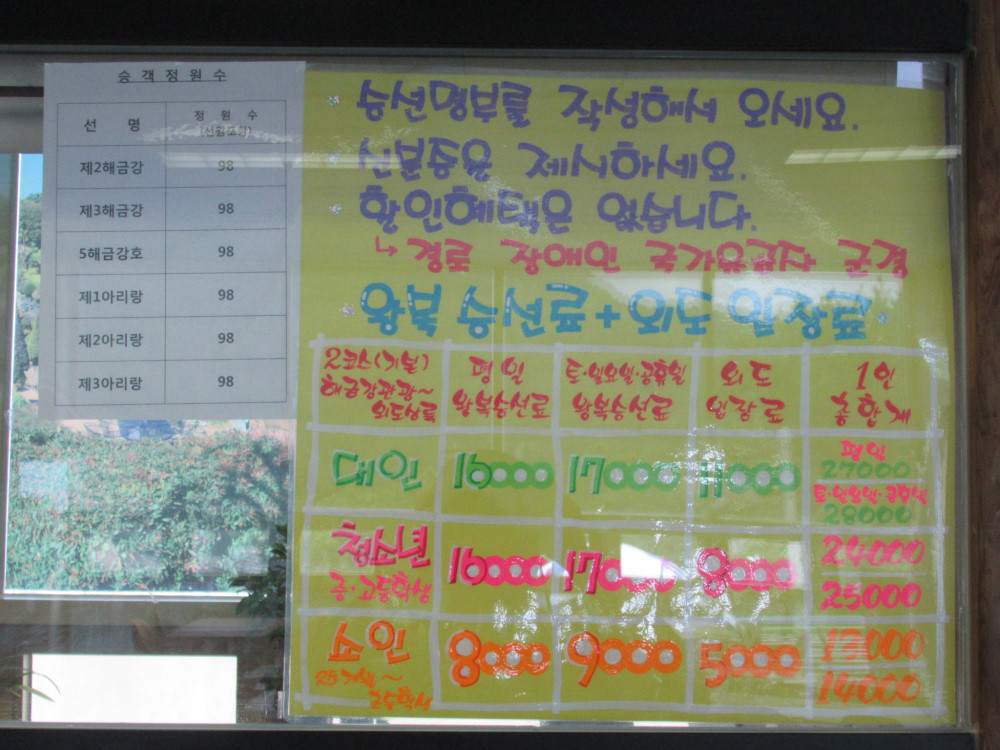 승 객 정 원 수
선 명 정 원 수
(선원포함)
제2해금강 98
제3해금강 98
5해금강호 98
제1아리랑 98
제2아리랑 98
제3아리랑 98
승선명부를 작성해서 오세요.
신분증을 제시하세요.
할인혜택은 없습니다.
↳ 경로 장애인 국가유공자 군경
왕복 승선료+외도 입장료
2코스(기본)
해금강관광~
외도상륙
평일
왕복승선료
토·일요일·공휴일
왕복승선료
외도
입장료
1인
총합계
대인 16000 17000 11000
평일
27000
토·일요일·공휴일
28000
청소년
중·고등학생
16000 17000 8000
24000
25000
소인
~
초등학생
8000 9000 5000
13000
14000